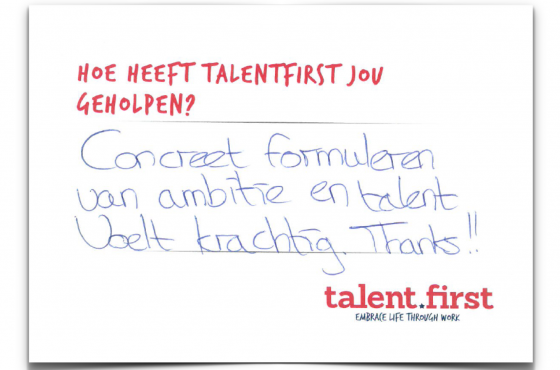 HOE HEEFT TALENTFIRST JOU
GEHOLPEN?
Concreet formuleren
van ambitie en talent
Voelt krachtig. Thanks!!
talent.first
EMBRACE LIFE THROUGH WORK